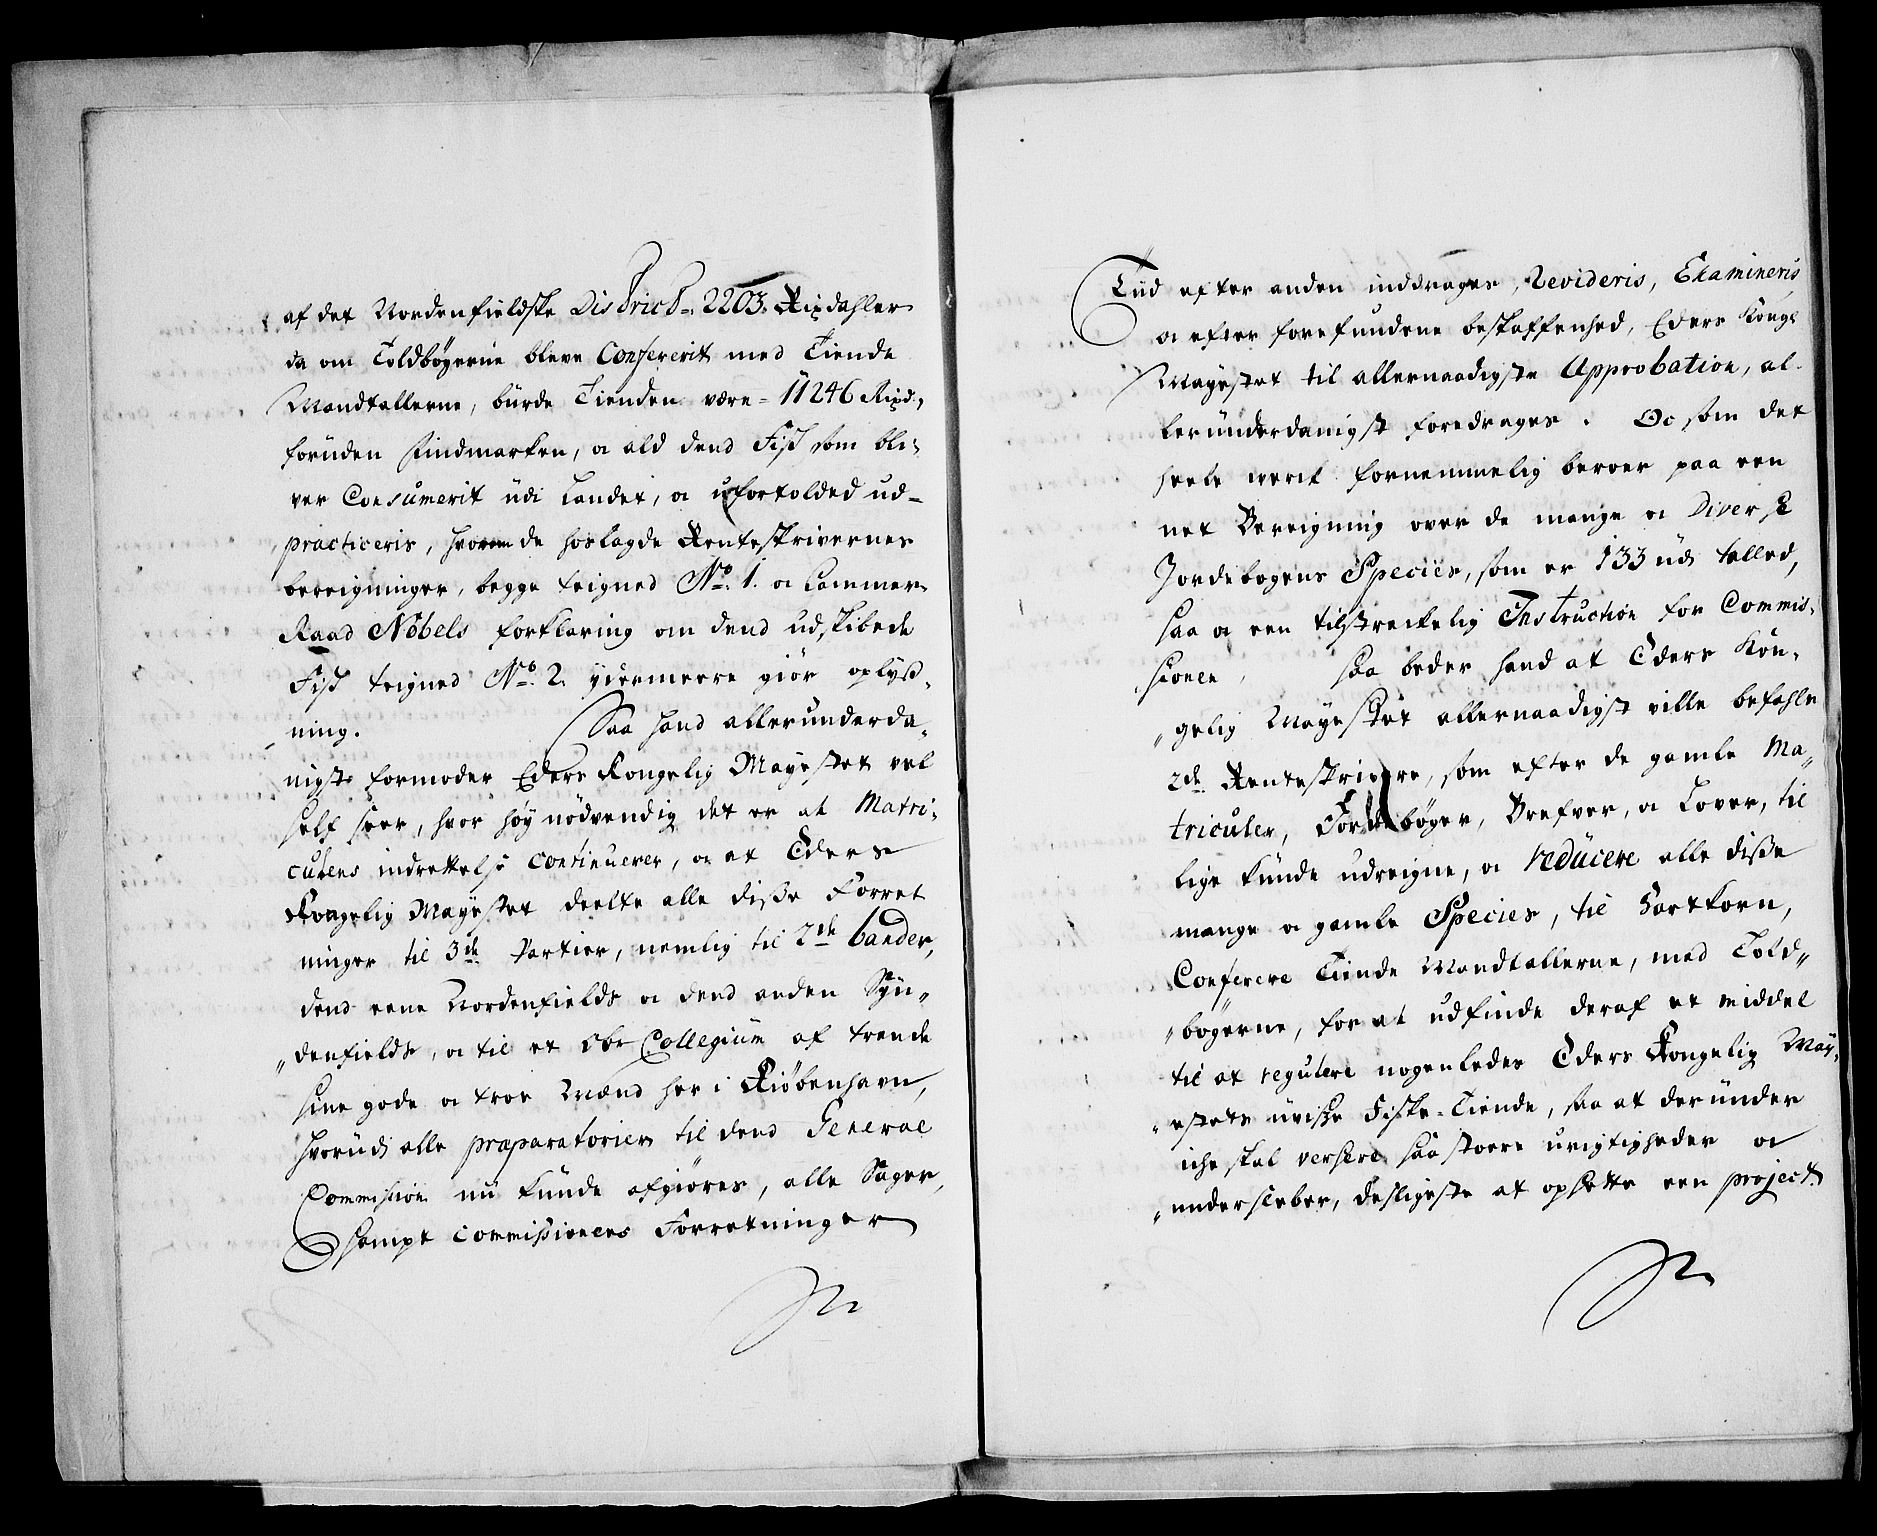 af det Nordenfieldske District - 2203. Rixdahler
da om Toldbøgerne bleve Confererit med Tiende
Mandtallerne, bürde Tienden være - 11246 Rixd:,
forüden Findmarken, oc ald dend Fisk som bli-
ver Consumerit üdi Landet, oc ufortolded ud-
practiceris, hvorom de hoslagde Renteskrivernes
bereigninger, begge teigned No. 1. oc Cammer-
Raad Nobels forklaring om dend udskibede
Fisk teigned No. 2. ydermeere giør oplyß-
ning. Saa hand allerunderda-
nigst formoder Eders Kongelig Mayestet vel
self seer, hvor høy nödvendig det er at Matri-
culens indrettelse continuerer, oc at Eders
Kongelig Mayestet deelte alle diße Forret
ninger til 3de Partier, nemlig til 2de bander,
dend eene Nordenfields oc dend anden Syn-
denfields, oc til et Obr Collegium af trende
sine gode oc troe Mænd her i Kiøbenhavn,
hvorüdi alle præparatorier til dend General
Commission nü kunde afgiøres, alle Sager,
sampt commissionens Forretninger
Tiid efter anden inddrages, Revideris, Examineris
oc efter forefundene beskaffenhed, Eders Kongl
Mayestet til allernaadigste Approbation, al-
leründerdanigst foredrages. Oc som det
heele werck fornemmelig beroer paa een
net Bereigning over de mange oc Diverse
Jordebogens Species, som er 133 üdi talled,
saa oc een tilstreckelig Instruction for Commis-
sionen, saa beder hand at Eders Kon-
gelig Mayestet allernaadigst ville befahle
2de Renteskrivere, som efter de gamle Ma-
triculer, Jordebøger, Brefver, oc Lover, til
lige kunde udreigne, oc reducere alle diße
mange oc gamle Species, til Hartkorn,
Conferere Tiende Mandtallerne, med Told-
bøgerne, for at udfinde deraf et middel
til at regulere nogenledes Eders Kongelig May-
estets üviße Fiske-Tiende, saa at deründer
iche skal versere saa stoere urigtigheder oc
undersleber, desligeste at opsette een project